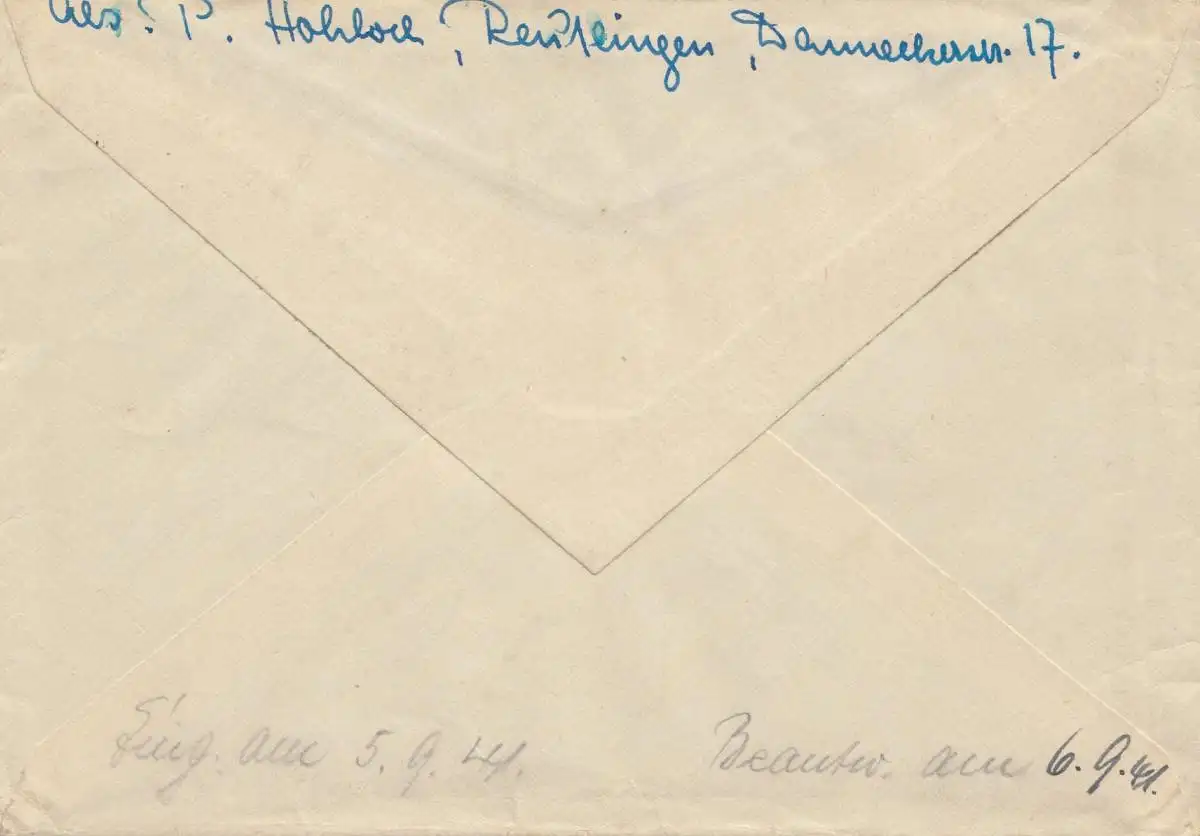 Abs: P. Hohloch, Reutlingen, Danneckerstr. 17.
Eing. am 5. 9. 41.
Beantw. am 6. 9. 41.